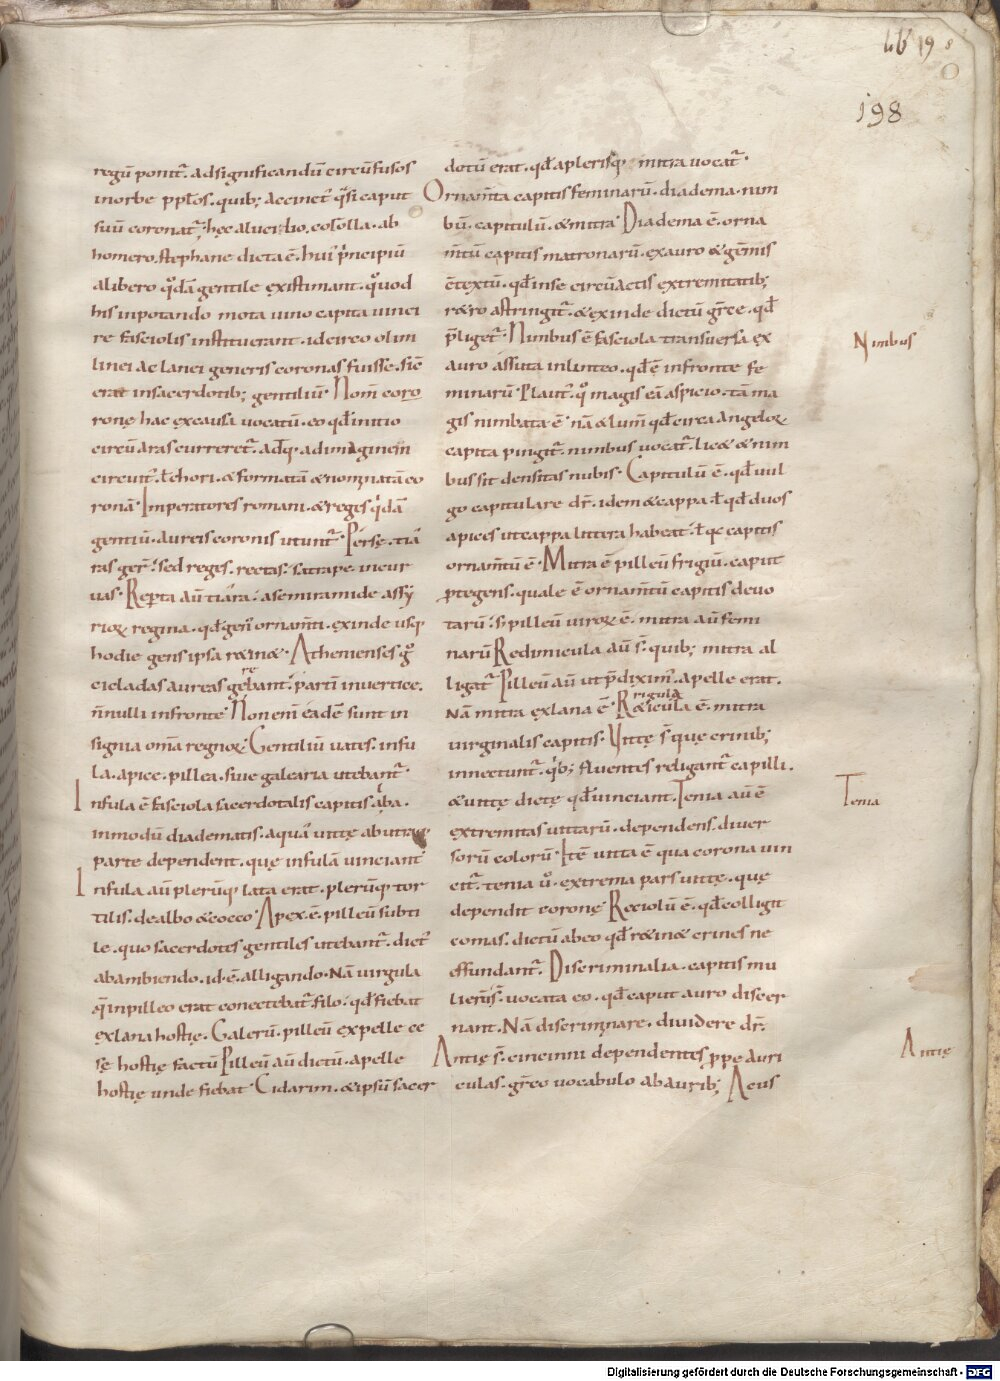 Lib 19
198
regū ponit᷒. ad significandū circū fusos
in orbe ppl̄os. quib; accinet᷒ q̄si caput
suū coronat᷒. hęc a luci
homero. stephane dicta ē. hui᷒ p̄ncipiū
a libero q͛dā gentile existimant. q͛uod
his in potando mota uino capita uinci
re fasciolis instituerant. id circo olim
linei ac lanei generis coronas fuisse. sic̄
erat in sacerdotib; gentiliū. Nom̄ coro
ronę hac ex causa uocatū. eo qđ initio
circū aras curreret᷒. adq; ad imaginem
circuit᷒. ł chori. & formatā & nominatā co
ronā. Imperatores romani. & reges q̇dā
gentiū. aureis coronis utunt᷒. Persę. tiā
ras ger᷒. sed reges. rectas. satrapę incur
uas. Reperta aū tiara. a semiramide assy
rioꝝ regina. qđ gen᷒ ornam̄ti. exinde usq;
hodie gens ipsa r&in&. Athenienses g͛
cicladas aureas gerebant. partī in uertice.
n̄nulli in fronte. Non enī eadē sunt in
signia om̄a regnoꝝ. Gentiliū uates. infu
la. apice. pillea. siue galearia utebant᷒.
Infula ē fasciola sacerdotalis capitis alba.
in modū diadematis. a qua uittę ab utraq;
parte dependent. quę infulā uinciant
Infula aū plerūq; lata erat. plerūq; tor
tilis. de albo & cocco. Apex. ē. pilleū subti
le. quo sacerdotes gentiles utebant᷒. dict᷒
ab ambiendo. id. ē. alligando. Nā uirgula
q̄ in pilleo erat conectebat᷒. filo. qđ fiebat
ex lana hostię. Galerū. pilleū ex pelle ce
sę hostię factū. Pilleū aū dictū. a pelle
hostię unde fiebat. Cidarim. & ipsū sacer
dotū erat. qđ a plerisq; mitra uocat᷒.
Ornam̄ta capitis feminarū. diadema. nim
bū. capitulū. & mitra. Diadema ē. orna
m̄tū capitis matronarū. ex auro & gēmis
c̄textū. qđ in se circūactis extremitatib;
r&ro astringit᷒. & exinde dictū gr̄ce. qđ
p̄liget᷒. Nimbus ē fasciola transuersa ex
auro assuta in linteo. qđ ē in fronte fe
minarū. Plaut᷒. q͛ magis eā aspicio. tā ma
gis nimbata ē. nā & lum̄ qđ circa angeloꝝ
capita pingit᷒. nimbus uocat᷒. lic& & nim
bus sit densitas nubis. Capitulū ē. qđ uul
go capitulare dr̄. idem & cappa. ł qđ duos
apices ut cappa littera habeat. ł qc capitis
ornam̄tū ē. Mitra ē pilleū frigiū. caput
ptegens. quale ē ornam̄tū capitis deuo
tarū. s; pilleū uiroꝝ ē. mitra aū femi
narū. Redimicula aū s̄. quib; mitra al
ligat᷒. Pilleū aū ut p̄dixim᷒. a pelle erat.
Nā mitra ex lana ē. Rigula
R&icula ē. mitra
uirginalis capitis. Vittę s̄ quę crinib;
innectunt᷒. q̇b; fluentes religant᷒ capilli.
& uittę dictę qđ uinciant. Tenia aū ē
extremitas uittarū. dependens. diuer
sorū colorū. Itē uitta ē qua corona uin
cit᷒. tenia u͛. extrema pars uittę. quę
dependit coronę. R&iolū ē. qđ colligit
comas. dictū ab eo qđ r&in& crines ne
effundant᷒. Discriminalia. capitis mu
lierū s̄. uocata eo. qđ caput auro discer
nant. Nā discriminare. diuidere dr̄.
Antię s̄. cincinni dependentes ꝓpe auri
culas. gr̄co uocabulo ab aurib; Acus
Nimbus
Tenia
Antię
Digitalisierung gefördert durch die Deutsche Forschungsgemeinschaft - DFG